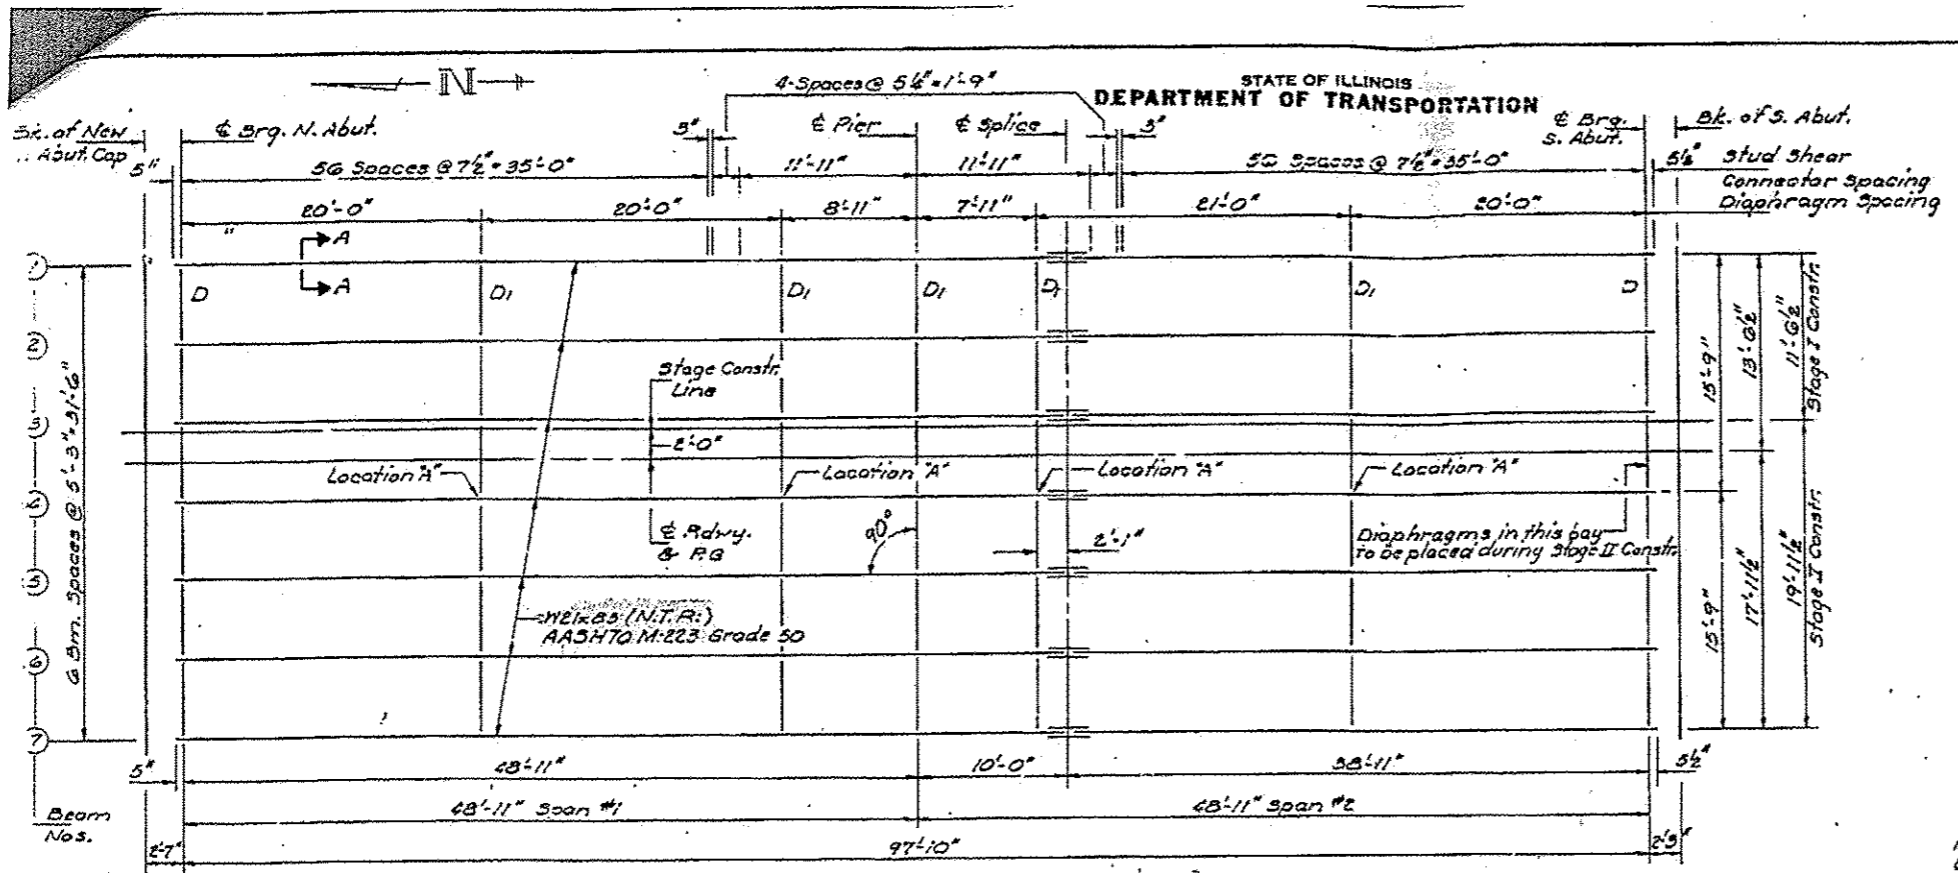 STATE OF ILLINOIS
DEPARTMENT OF TRANSPORTATION
N
4-Spaces @ 5¼"=1'-9"
Bk. of New
Abut. Cap
℄ Brg. N. Abut.
3"
℄ Pier
℄ Splice
3"
℄ Brg.
S. Abut.
Bk. of S. Abut.
5"
56 Spaces @ 7½"=35'-0"
11'-11"
11'-11"
56 Spaces @ 7½"=35'-0"
5½"
Stud Shear
Connector Spacing
Diaphragm Spacing
20'-0"
20'-0"
8'-11"
7'-11"
21'-0"
20'-0"
A
A
1
D
D1
D1
D1
D1
D1
D
2
3
5
6
7
6 Bm. Spaces @ 5'-3"=31'-6"
Stage Constr.
Line
2'-0"
Location "A"
Location "A"
Location "A"
Location "A"
℄ Rdwy.
& P.G
90°
2'-1"
Diaphragms in this bay
to be placed during Stage II Constr.
W21x83 (N.T.R.)
AASHTO M-223 Grade 50
15'-9"
13'-6½"
11'-6½"
Stage I Constr.
15'-9"
17'-11½"
19'-11½"
5"
48'-11"
10'-0"
38'-11"
5½"
Beam
Nos.
48'-11" Span #1
48'-11" Span #2
2'-7"
97'-10"